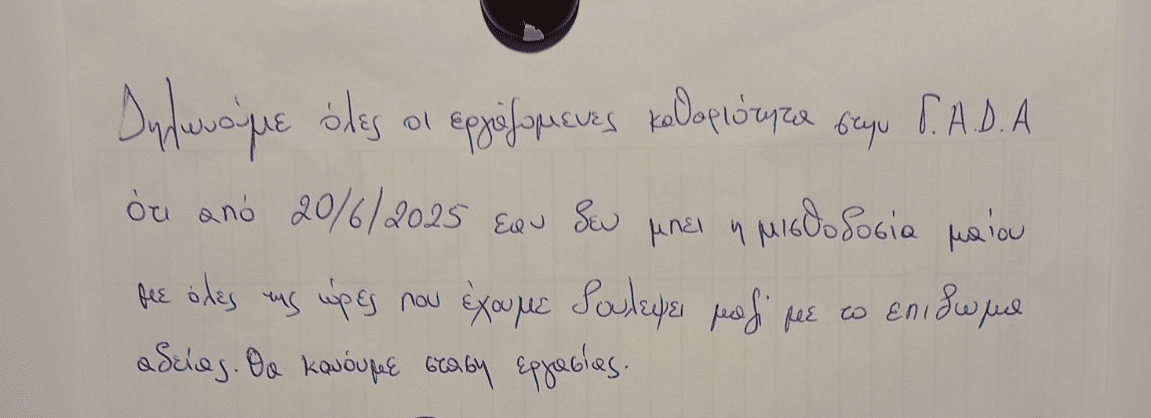 Δηλωνούμε όλες οι εργάζομενες καθαριότητα στην Γ.Α.Δ.Α
ότι από 20/6/2025 εαν δεν μπει η μισθοδοσία μαίου
με όλες της ώρες που έχουμε δουλεψει μαζί με το επιδωμα
αδείας. Θα κανόυμε σταση εργασίας.